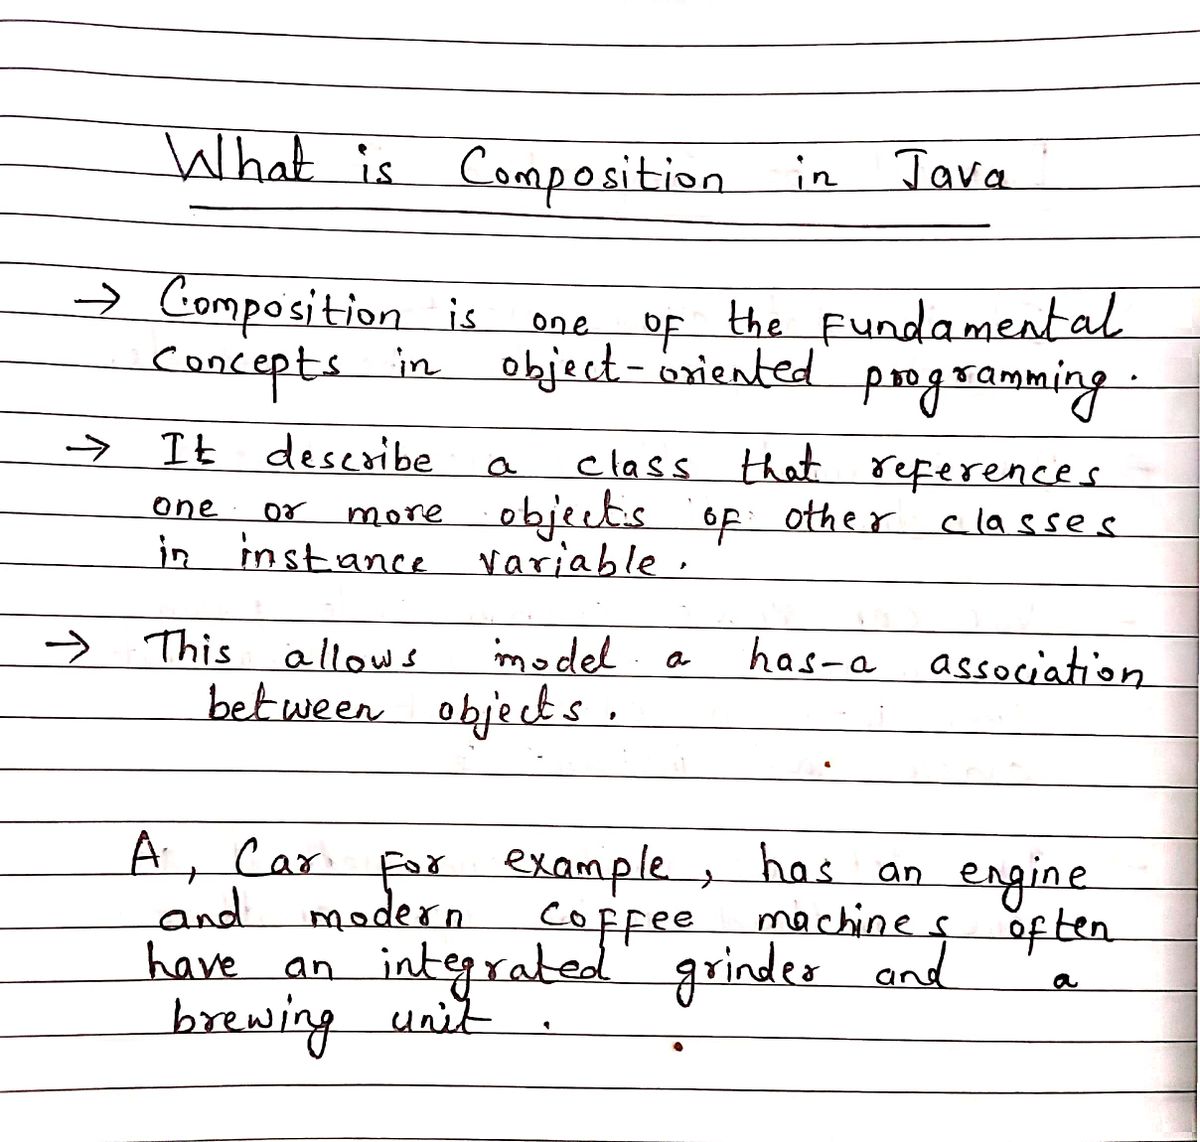 What is Composition in Java
→ Composition is one of the Fundamental
Concepts in object-oriented programming.
→ It describe a class that references
one or more objects of other classes
in instance variable.
→ This allows model a has-a association
between objects.
A, Car For example, has an engine
and modern coffee machines often
have an integrated grinder and a
brewing unit.